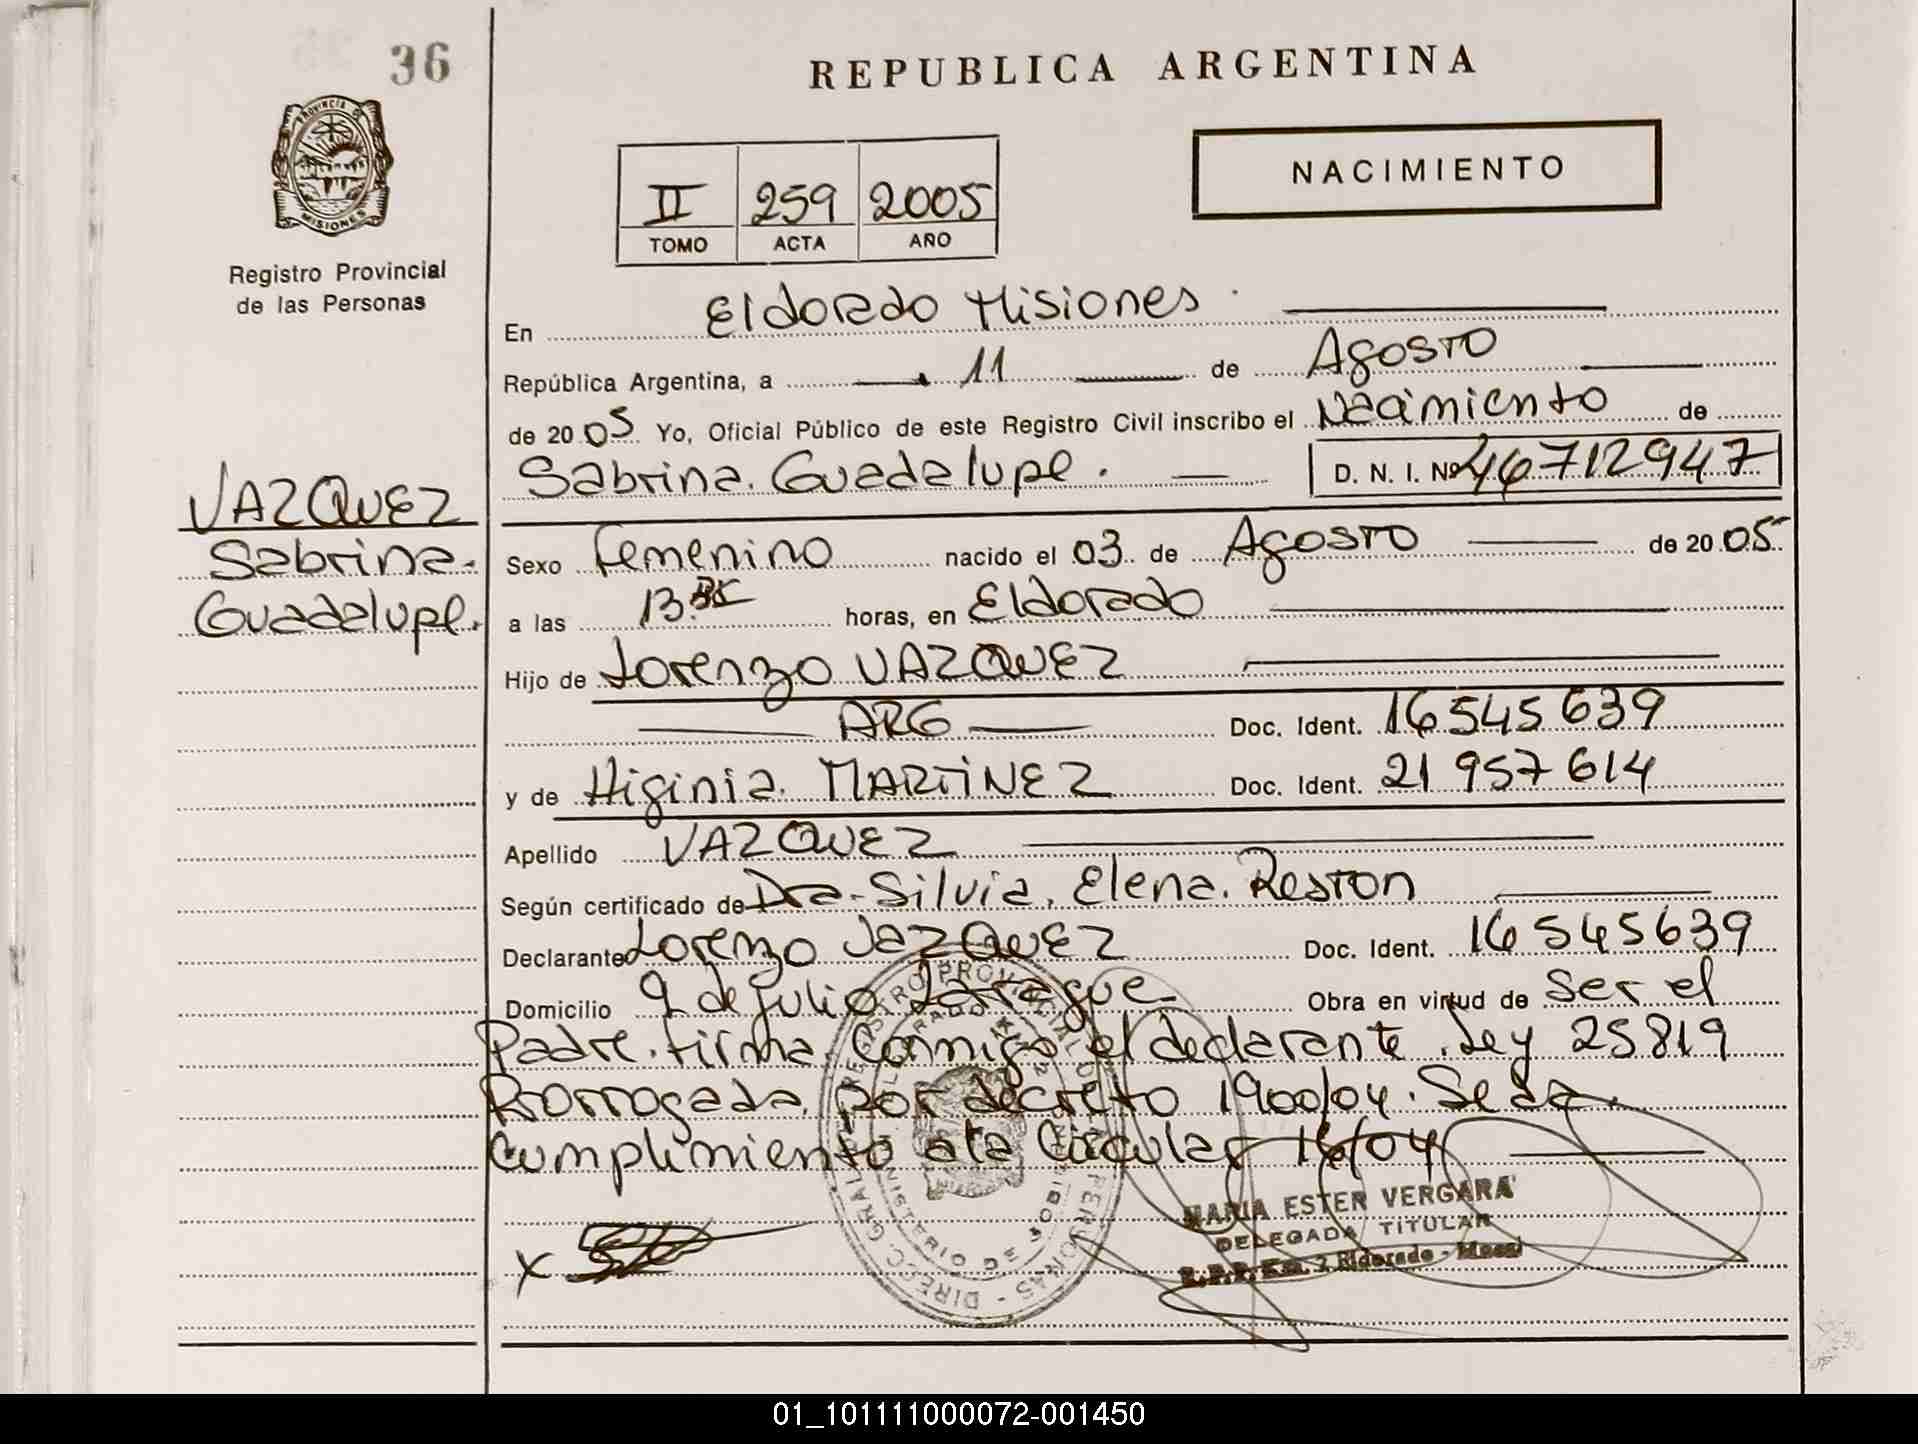 36
REPUBLICA ARGENTINA
PROVINCIA DE
MISIONES
Registro Provincial
de las Personas
II 259 2005
TOMO ACTA AÑO
NACIMIENTO
En Eldorado Misiones.
República Argentina, a 11 de Agosto
de 2005 Yo, Oficial Público de este Registro Civil inscribo el Nacimiento de
Sabrina Guadalupe. D. N. I. Nº 46712947
VAZQUEZ
Sabrina
Guadalupe.
Sexo Femenino nacido el 03 de Agosto de 2005
a las 13 horas, en Eldorado
Hijo de Lorenzo VAZQUEZ
ARG Doc. Ident. 16545639
y de Higinia MARTINEZ Doc. Ident. 21957614
Apellido VAZQUEZ
Según certificado de Dra. Silvia Elena Reston
Declarante Lorenzo VAZQUEZ Doc. Ident. 16545639
Domicilio 9 de Julio Larrague Obra en virtud de ser el
Padre. Firma Conmigo el declarante. Ley 25819
Prorrogada por decreto 1900/04. Se da
cumplimiento a la Circular 16/04
MARIA ESTER VERGARA
DELEGADA TITULAR
Eldorado
X
01_101111000072-001450